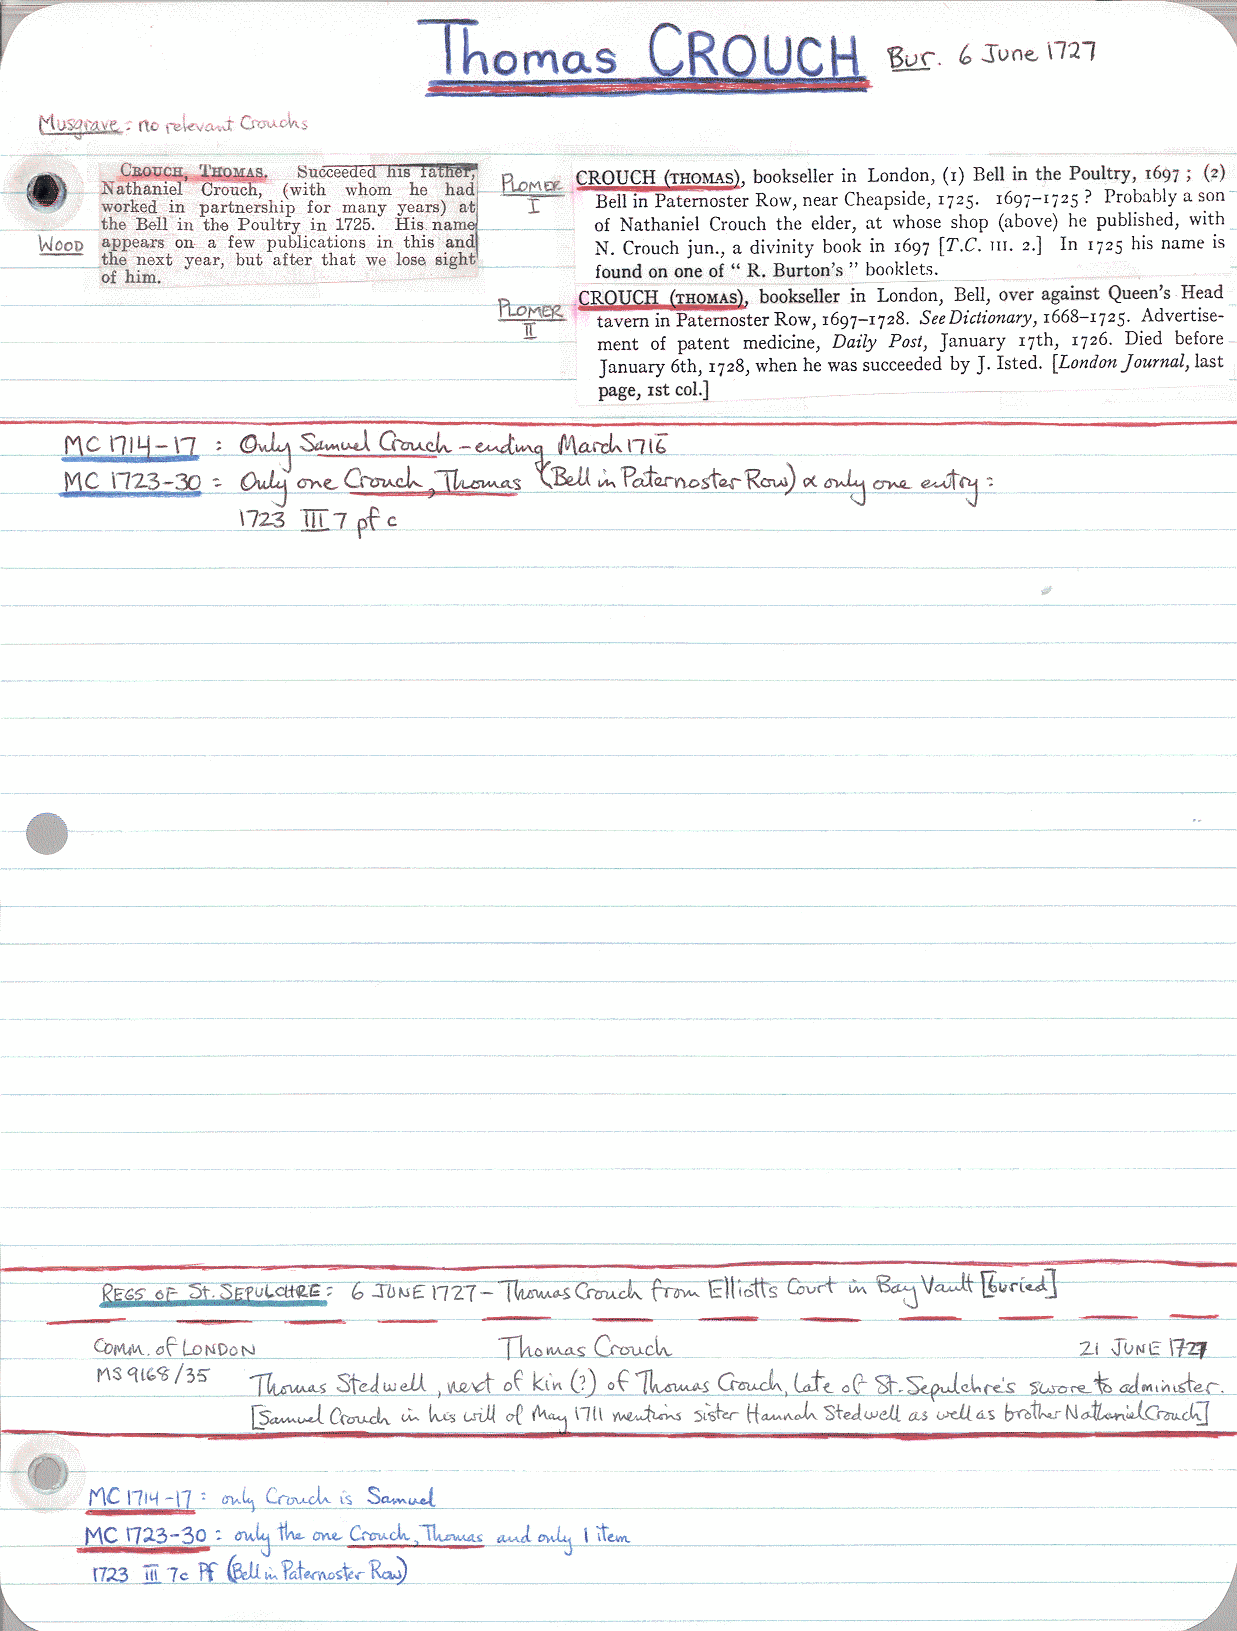 Thomas CROUCH Bur. 6 June 1727
Musgrave: no relevant Crouchs
WOOD
CROUCH, THOMAS. Succeeded his father,
Nathaniel Crouch, (with whom he had
worked in partnership for many years) at
the Bell in the Poultry in 1725. His name
appears on a few publications in this and
the next year, but after that we lose sight
of him.
PLOMER
I
CROUCH (THOMAS), bookseller in London, (1) Bell in the Poultry, 1697 ; (2)
Bell in Paternoster Row, near Cheapside, 1725. 1697–1725 ? Probably a son
of Nathaniel Crouch the elder, at whose shop (above) he published, with
N. Crouch jun., a divinity book in 1697 [T.C. III. 2.] In 1725 his name is
found on one of “ R. Burton's ” booklets.
PLOMER
II
CROUCH (THOMAS), bookseller in London, Bell, over against Queen's Head
tavern in Paternoster Row, 1697–1728. See Dictionary, 1668–1725. Advertise-
ment of patent medicine, Daily Post, January 17th, 1726. Died before
January 6th, 1728, when he was succeeded by J. Isted. [London Journal, last
page, 1st col.]
MC 1714-17 : Only Samuel Crouch - ending March 1716
MC 1723-30 : Only one Crouch, Thomas (Bell in Paternoster Row) & only one entry :
1723 III 7 pf c
REGS OF St. SEPULCHRE: 6 JUNE 1727 - Thomas Crouch from Elliotts Court in Bay Vault [buried]
COMM. of LONDON Thomas Crouch 21 JUNE 1727
MS 9168/35 Thomas Stedwell, next of kin (?) of Thomas Crouch, late of St. Sepulchre's swore to administer.
[Samuel Crouch in his will of May 1711 mentions sister Hannah Stedwell as well as brother Nathaniel Crouch]
MC 1714-17 : only Crouch is Samuel
MC 1723-30 : only the one Crouch, Thomas and only 1 item
1723 III 7c Pf (Bell in Paternoster Row)